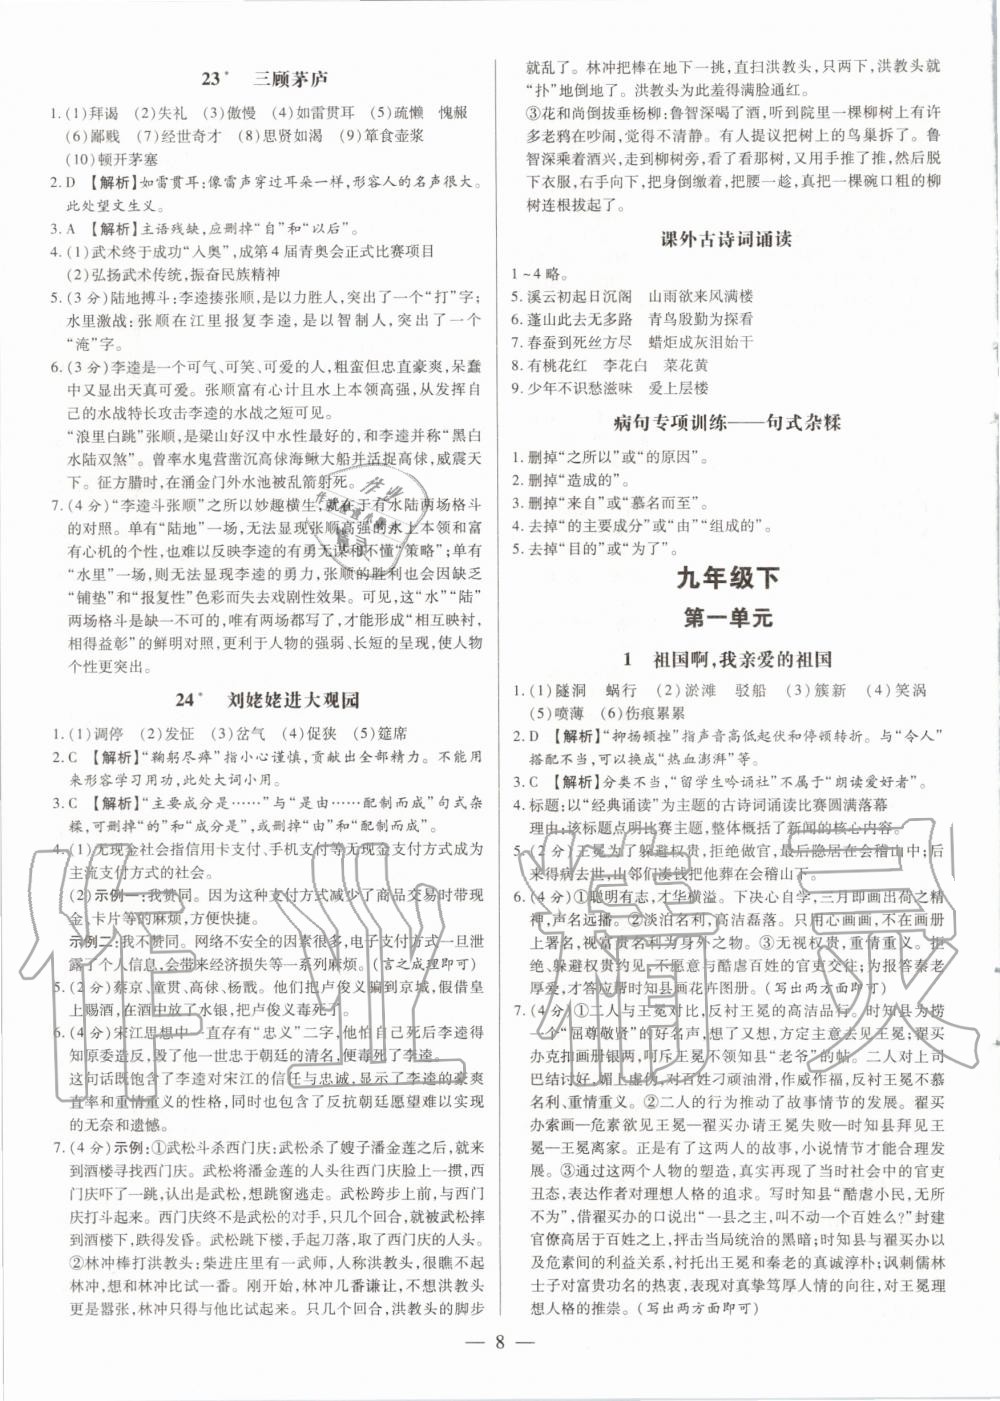 23* 三顾茅庐
1. (1)拜谒 (2)失礼 (3)傲慢 (4)如雷贯耳 (5)疏懒 愧赧
(6)鄙贱 (7)经世奇才 (8)思贤如渴 (9)箪食壶浆
(10)顿开茅塞
2. D 【解析】如雷贯耳:像雷声穿过耳朵一样,形容人的名声很大。
此处望文生义。
3. A 【解析】主语残缺,应删掉“自”和“以后”。
4. (1)武术终于成功“入奥”,成第4届青奥会正式比赛项目
(2)弘扬武术传统,振奋民族精神
5. (3分)陆地搏斗:李逵揍张顺,是以力胜人,突出了一个“打”字;
水里激战:张顺在江里报复李逵,是以智制人,突出了一个
“淹”字。
6. (3分)李逵是一个可气、可笑、可爱的人,粗蛮但忠直豪爽,呆蠢
中又显出天真可爱。张顺富有心计且水上本领高强,从发挥自己
的水战特长攻击李逵的水战之短可见。
“浪里白跳”张顺,是梁山好汉中水性最好的,和李逵并称“黑白
水陆双煞”。曾率水鬼营凿沉高俅海鳅大船并活捉高俅,威震天
下。征方腊时,在涌金门外水池被乱箭射死。
7. (4分)“李逵斗张顺”之所以妙趣横生,就在于有水陆两场格斗
的对照。单有“陆地”一场,无法显现张顺高强的水上本领和富
有心机的个性,也难以反映李逵的有勇无谋和不懂“策略”;单有
“水里”一场,则无法显现李逵的勇力,张顺的胜利也会因缺乏
“铺垫”和“报复性”色彩而失去戏剧性效果。可见,这“水”“陆”
两场格斗是缺一不可的,唯有两场都写了,才能形成“相互映衬,
相得益彰”的鲜明对照,更利于人物的强弱、长短的呈现,使人物
个性更突出。
24* 刘姥姥进大观园
1. (1)调停 (2)发怔 (3)岔气 (4)促狭 (5)筵席
2. C 【解析】“鞠躬尽瘁”指小心谨慎,贡献出全部精力。不能用
来形容学习用功,此处大词小用。
3. C 【解析】“主要成分是……”与“是由……配制而成”句式杂
糅,可删掉“的”和“成分是”,或删掉“由”和“配制而成”。
4. (1)无现金社会指信用卡支付、手机支付等无现金支付方式成为
主流支付方式的社会。
(2)示例一:我赞同。因为这种支付方式减少了商品交易时使用现
金、卡片等的麻烦,方便快捷。
示例二:我不赞同。网络不安全的因素很多,电子支付方式一旦泄
露了个人信息,会带来经济损失等一系列麻烦。(言之成理即可)
5. (2分)蔡京、童贯、高俅、杨戬。他们把卢俊义骗到京城,假借皇
上赐酒,在酒中放了水银,把卢俊义毒死了。
6. (4分)宋江思想中一直存有“忠义”二字,他怕自己死后李逵得
知原委造反,毁了他一世忠于朝廷的清名,便毒死了李逵。
这句话既饱含了李逵对宋江的信任与忠诚,显示了李逵的豪爽
直率和重情重义的性格,同时也包含了反抗朝廷愿望难以实现的
无奈和遗憾。
7. (4分)示例:①武松斗杀西门庆:武松杀了嫂子潘金莲之后,就来
到酒楼寻找西门庆。武松将潘金莲的人头往西门庆脸上一掼,西
门庆吓了一跳,认出是武松,想跳窗逃走。武松跨步上前,与西门
庆打斗起来。西门庆终不是武松的对手,只几个回合,就被武松扔
下楼去,跌得发昏。武松跳下楼去,手起刀落,取了西门庆的首级。
②林冲棒打洪教头:柴进庄里有一武师,人称洪教头,他瞧不起
林冲,想和林冲比试一番。刚开始,林冲几番谦让,不想洪教头
更是嚣张,林冲只得与他比试起来。只几个回合,洪教头的脚步
就乱了。林冲把棒在地下一挑,直扫洪教头,只两下,洪教头就
“扑”地倒在了地上。洪教头为此羞得满脸通红。
③花和尚倒拔垂杨柳:鲁智深喝了酒,听到院里一棵柳树上有许
多老鸦在吵闹,觉得不清静。有人提议把树上的鸟巢拆了。鲁
智深乘着酒兴,走到柳树旁,看了看那树,又用手推了推,然后脱
下衣服,右手向下,俯身倒缠着,把腰一挺,竟把一棵碗口粗的柳
树连根拔起了。
课外古诗词诵读
1~4 略。
5. 溪云初起日沉阁 山雨欲来风满楼
6. 蓬山此去无多路 青鸟殷勤为探看
7. 春蚕到死丝方尽 蜡炬成灰泪始干
8. 有桃花红 李花白 菜花黄
9. 少年不识愁滋味 爱上层楼
病句专项训练——句式杂糅
1. 删掉“之所以”或“的原因”。
2. 删掉“造成的”。
3. 删掉“来自”或“慕名而至”。
4. 去掉“的主要成分”或“由”“组成的”。
5. 去掉“目的”或“为了”。
九年级下
第一单元
1 祖国啊,我亲爱的祖国
1. (1)隧洞 蜗行 (2)淤滩 驳船 (3)簇新 (4)笑涡
(5)喷薄 (6)伤痕累累
2. D 【解析】“抑扬顿挫”指声音高低起伏和停顿转折。与“令人”
搭配不当,可换成“热血澎湃”等。
3. C 【解析】分类不当,“留学生吟诵社”不属于“朗读爱好者”。
4. 标题:以“经典诵读”为主题的古诗词诵读比赛圆满落幕
理由:该标题点明比赛主题,整体概括了新闻的核心内容。
5. (2分)王冕为了躲避权贵,拒绝做官,最后隐居在会稽山中,后
来得病去世,山邻们凑钱把他葬在会稽山下。
6. (4分)①聪明好学,才华横溢。下决心自学,三月即画荷传神,
声名远播。②淡泊名利,高洁磊落。只用心画画,不在画册
上署名,视富贵名利为身外之物。③无视权贵,重情重义。拒
绝、躲避权贵约见,不愿意与酷虐百姓的官吏交往;为报答秦老
厚爱,才答应帮时知县画花卉图册。(写出两方面即可)
7. (4分)①二人与王冕对比,反衬王冕的高洁品行。时知县为博得
一个“屈尊敬贤”的好声名,想了又想,方定主意去见王冕;翟买
办克扣画册银两,呵斥王冕叫时知县“老爷”的帖。二人对上司
阿谀谄媚,虚伪,对百姓刁顽油滑,作威作福,反衬王冕不慕
名利,重情重义。②二人的行为推动了故事情节的发展。翟买
办索画——危素欲见王冕——翟买办请王冕失败——时知县拜见王
冕——王冕离家。正是有了这两人的故事,小说情节才能合理发
展。③通过这两个人物的塑造,真实再现了当时社会中的官吏
丑态,表达作者对理想人格的追求。写时知县“酷虐小民,无所
不为”,借翟买办的口说出“一县之主,叫不动一个百姓么?”封建
官僚高高在上的形象跃然纸上,抨击当局统治的黑暗;时知县以
及危素间的利益关系,反衬王冕与秦老的真诚淳朴;讽刺儒林
士子对富贵功名的热衷,表现对真挚笃厚人情的向往,对王冕理
想人格的推崇。(写出两方面即可)
— 8 —
作业精灵